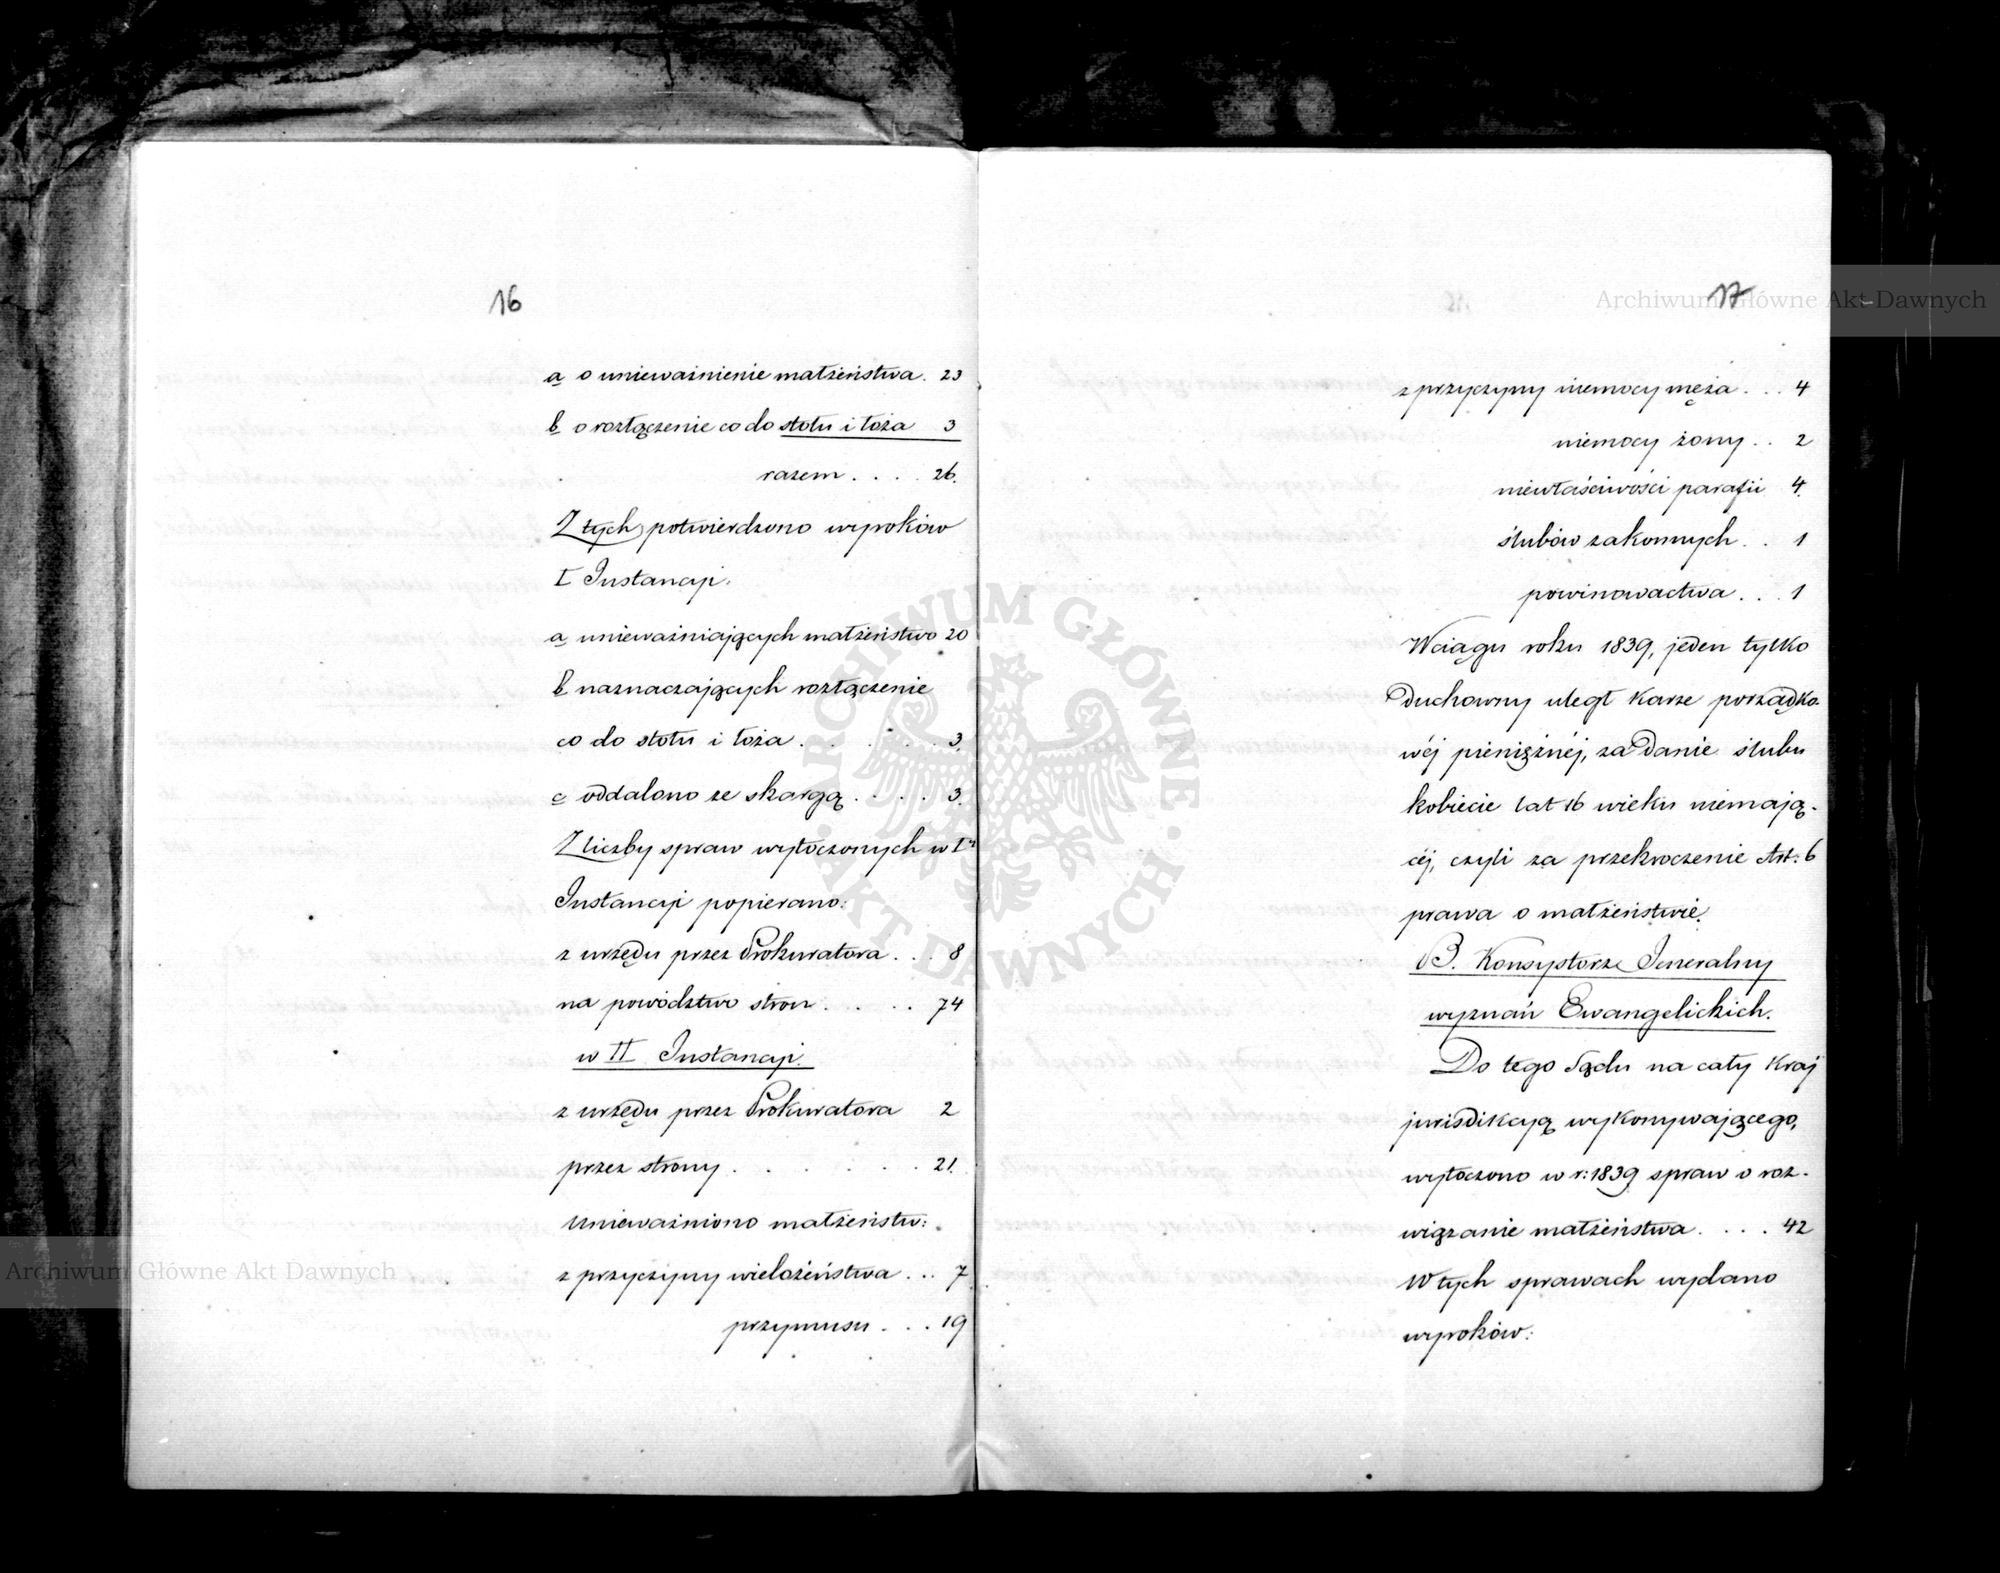 16
a o unieważnienie małżeństwa. 23
b o rozłączenie co do stołu i łoża 3
razem .... 26.
Z tych potwierdzono wyroków
I Instancji:
a unieważniających małżeństwo 20
b naznaczających rozłączenie
co do stołu i łoża ..... 3.
c oddalono ze skargą .... 3.
Z liczby spraw wytoczonych w I
Instancji popierano:
z urzędu przez Prokuratora ... 8
na powództwo stron ..... 74
w II Instancji.
z urzędu przez Prokuratora 2
przez strony ...... 21.
Unieważniono małżeństw:
z przyczyny wielożeństwa ... 7
przymusu ... 19
17
z przyczyny niemocy męża ... 4
niemocy żony .. 2
niewłaściwości parafii 4.
ślubów zakonnych .. 1
powinowactwa ... 1
W ciągu roku 1839, jeden tylko
Duchowny uległ karze porządko-
wéj pieniężnéj, za danie ślubu
kobiecie lat 16 wieku niemają-
céj, czyli za przekroczenie Art: 6
prawa o małżeństwie.
B. Konsystorz Jeneralny
wyznań Ewangelickich.
Do tego Sądu na cały Kraj
jurisdikcyą wykonywającego,
wytoczono w r: 1839 spraw o roz-
wiązanie małżeństwa .... 42
W tych sprawach wydano
wyroków:
Archiwum Główne Akt Dawnych
Archiwum Główne Akt Dawnych
ARCHIWUM GŁÓWNE
AKT DAWNYCH